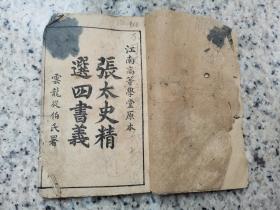 江南高等學堂原本
張太史精
選四書義
雲龍從伯氏署